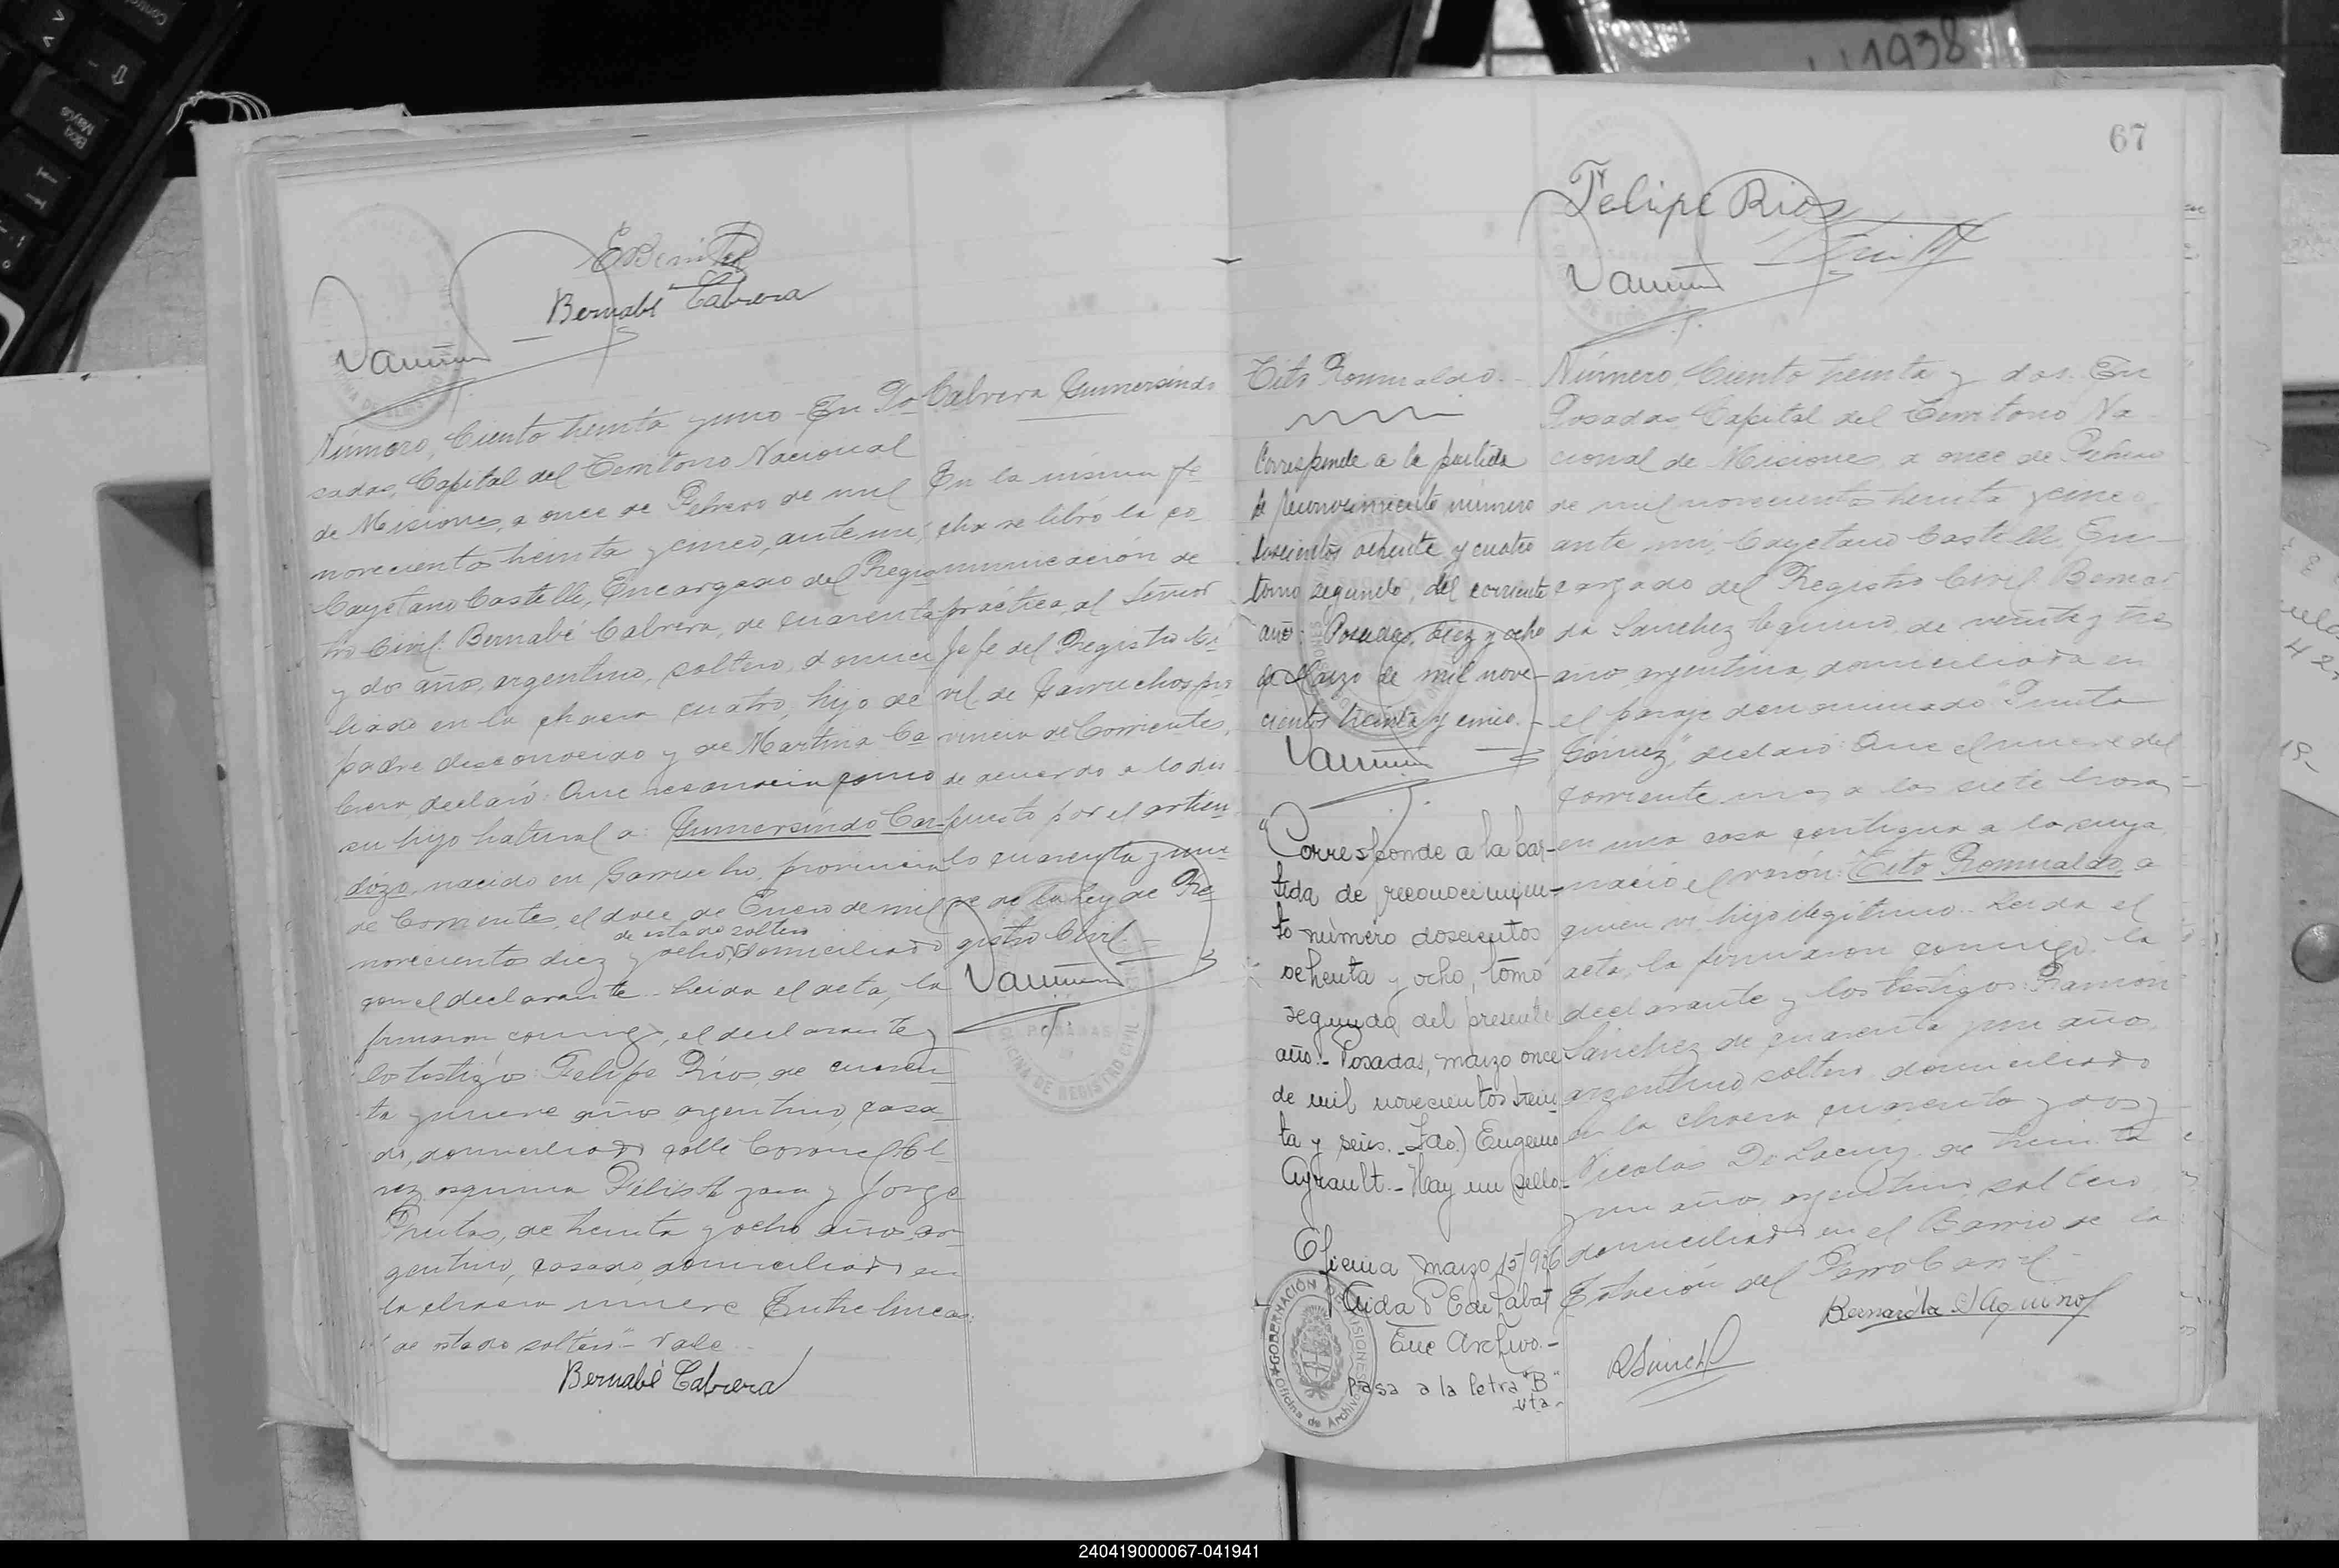 EBenitez
Bernabé Cabrera
Número, Ciento treinta y uno - En Po
sadas, Capital del Territorio Nacional
de Misiones, a once de Febrero de mil
novecientos treinta y cinco, ante mí,
Cayetano Castelli, Encargado del Regis
tro Civil: Bernabé Cabrera, de cuarenta
y dos años, argentino, soltero, domici
liado en la chacra cuatro, hijo de
padre desconocido y de Martina Ca
brera, declaró: Que reconocía como
su hijo natural a: Gumersindo Car
dozo, nacido en Garrucho, provincia
de Corrientes, el doce de Enero de mil
de estado soltero
novecientos diez y ocho, domiciliado
con el declarante.. Leída el acta, la
firmaron conmigo, el declarante y
los testigos: Felipe Rios, de cuaren
ta y nueve años argentino, casa
do, domiciliado calle Coronel Al
vez esquina Félix de Azara y Jorge
Freitas, de treinta y ocho años, ar
gentino, casado, domiciliado en
la chacra nueve Entre lineas:
"de estado soltero" - Vale
Bernabé Cabrera
Cabrera Gumersindo
En la misma fe
cha se libró la co
municación de
práctica, al Señor
Jefe del Registro Ci
vil de Garruchos, pro
vincia de Corrientes,
de acuerdo a lo dis
puesto por el artícu
lo cuarenta y nue
ve de la Ley de Re
gistro Civil.
POSADAS
OFICINA DE REGISTRO CIVIL
67
Felipe Rios
Tito Romualdo.-
Corresponde a la partida
de reconocimiento número
doscientos ochenta y cuatro
tomo segundo, del corriente
año: Posadas, diez y ocho
de Marzo de mil nove-
cientos treinta y cinco.-
"Corresponde a la par-
tida de reconocimien-
to número doscientos
ochenta y ocho, tomo
segundo del presente
año.- Posadas, marzo once
de mil novecientos trein
ta y seis.- Fdo.) Eugenio
Ayrault.- Hay un sello.-
Oficina, marzo 15/936
Aida P E de Labat
Enc Archivo.-
Pasa a la letra "B"
vta.-
GOBERNACIÓN DE MISIONES
Oficina de Archivo
Número, Ciento treinta y dos. En
Posadas, Capital del Territorio Na
cional de Misiones, a once de Febrero
de mil novecientos treinta y cinco,
ante mí, Cayetano Castelli, En-
cargado del Registro Civil: Bernar
da Sanchez Aquino, de veinte y tres
años, argentina, domiciliada en
el paraje denominado "Punta
Gómez", declaró: Que el nueve del
corriente mes, a las siete horas,
en una casa contigua a la suya
nació el varón: Tito Romualdo, a
quien es hijo ilegítimo.. Leída el
acta, la firmaron conmigo, la
declarante y los testigos: Ramón
Sánchez de cuarenta y un años,
argentino soltero, domiciliado
en la chacra cuarenta y dos y
Nicolás De Lacruz, de treinta
y un años, argentino, soltero
domiciliado en el Barrio de la
Estación del Ferro Carril.
Bernarda S Aquino
RSanchez
240419000067-041941